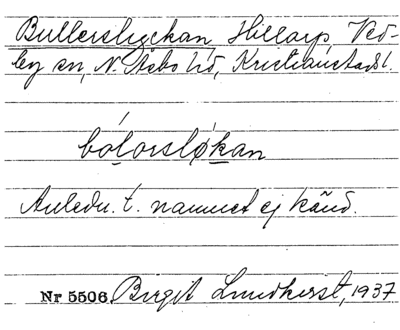 Bullerslyckan Hillarp Ved-
by sn, N. Åsbo hd, Kristianstads l.
bólorsløkan
Anledn. t. namnet ej känd.
Nr 5506. Birgit Lundkvist, 1937